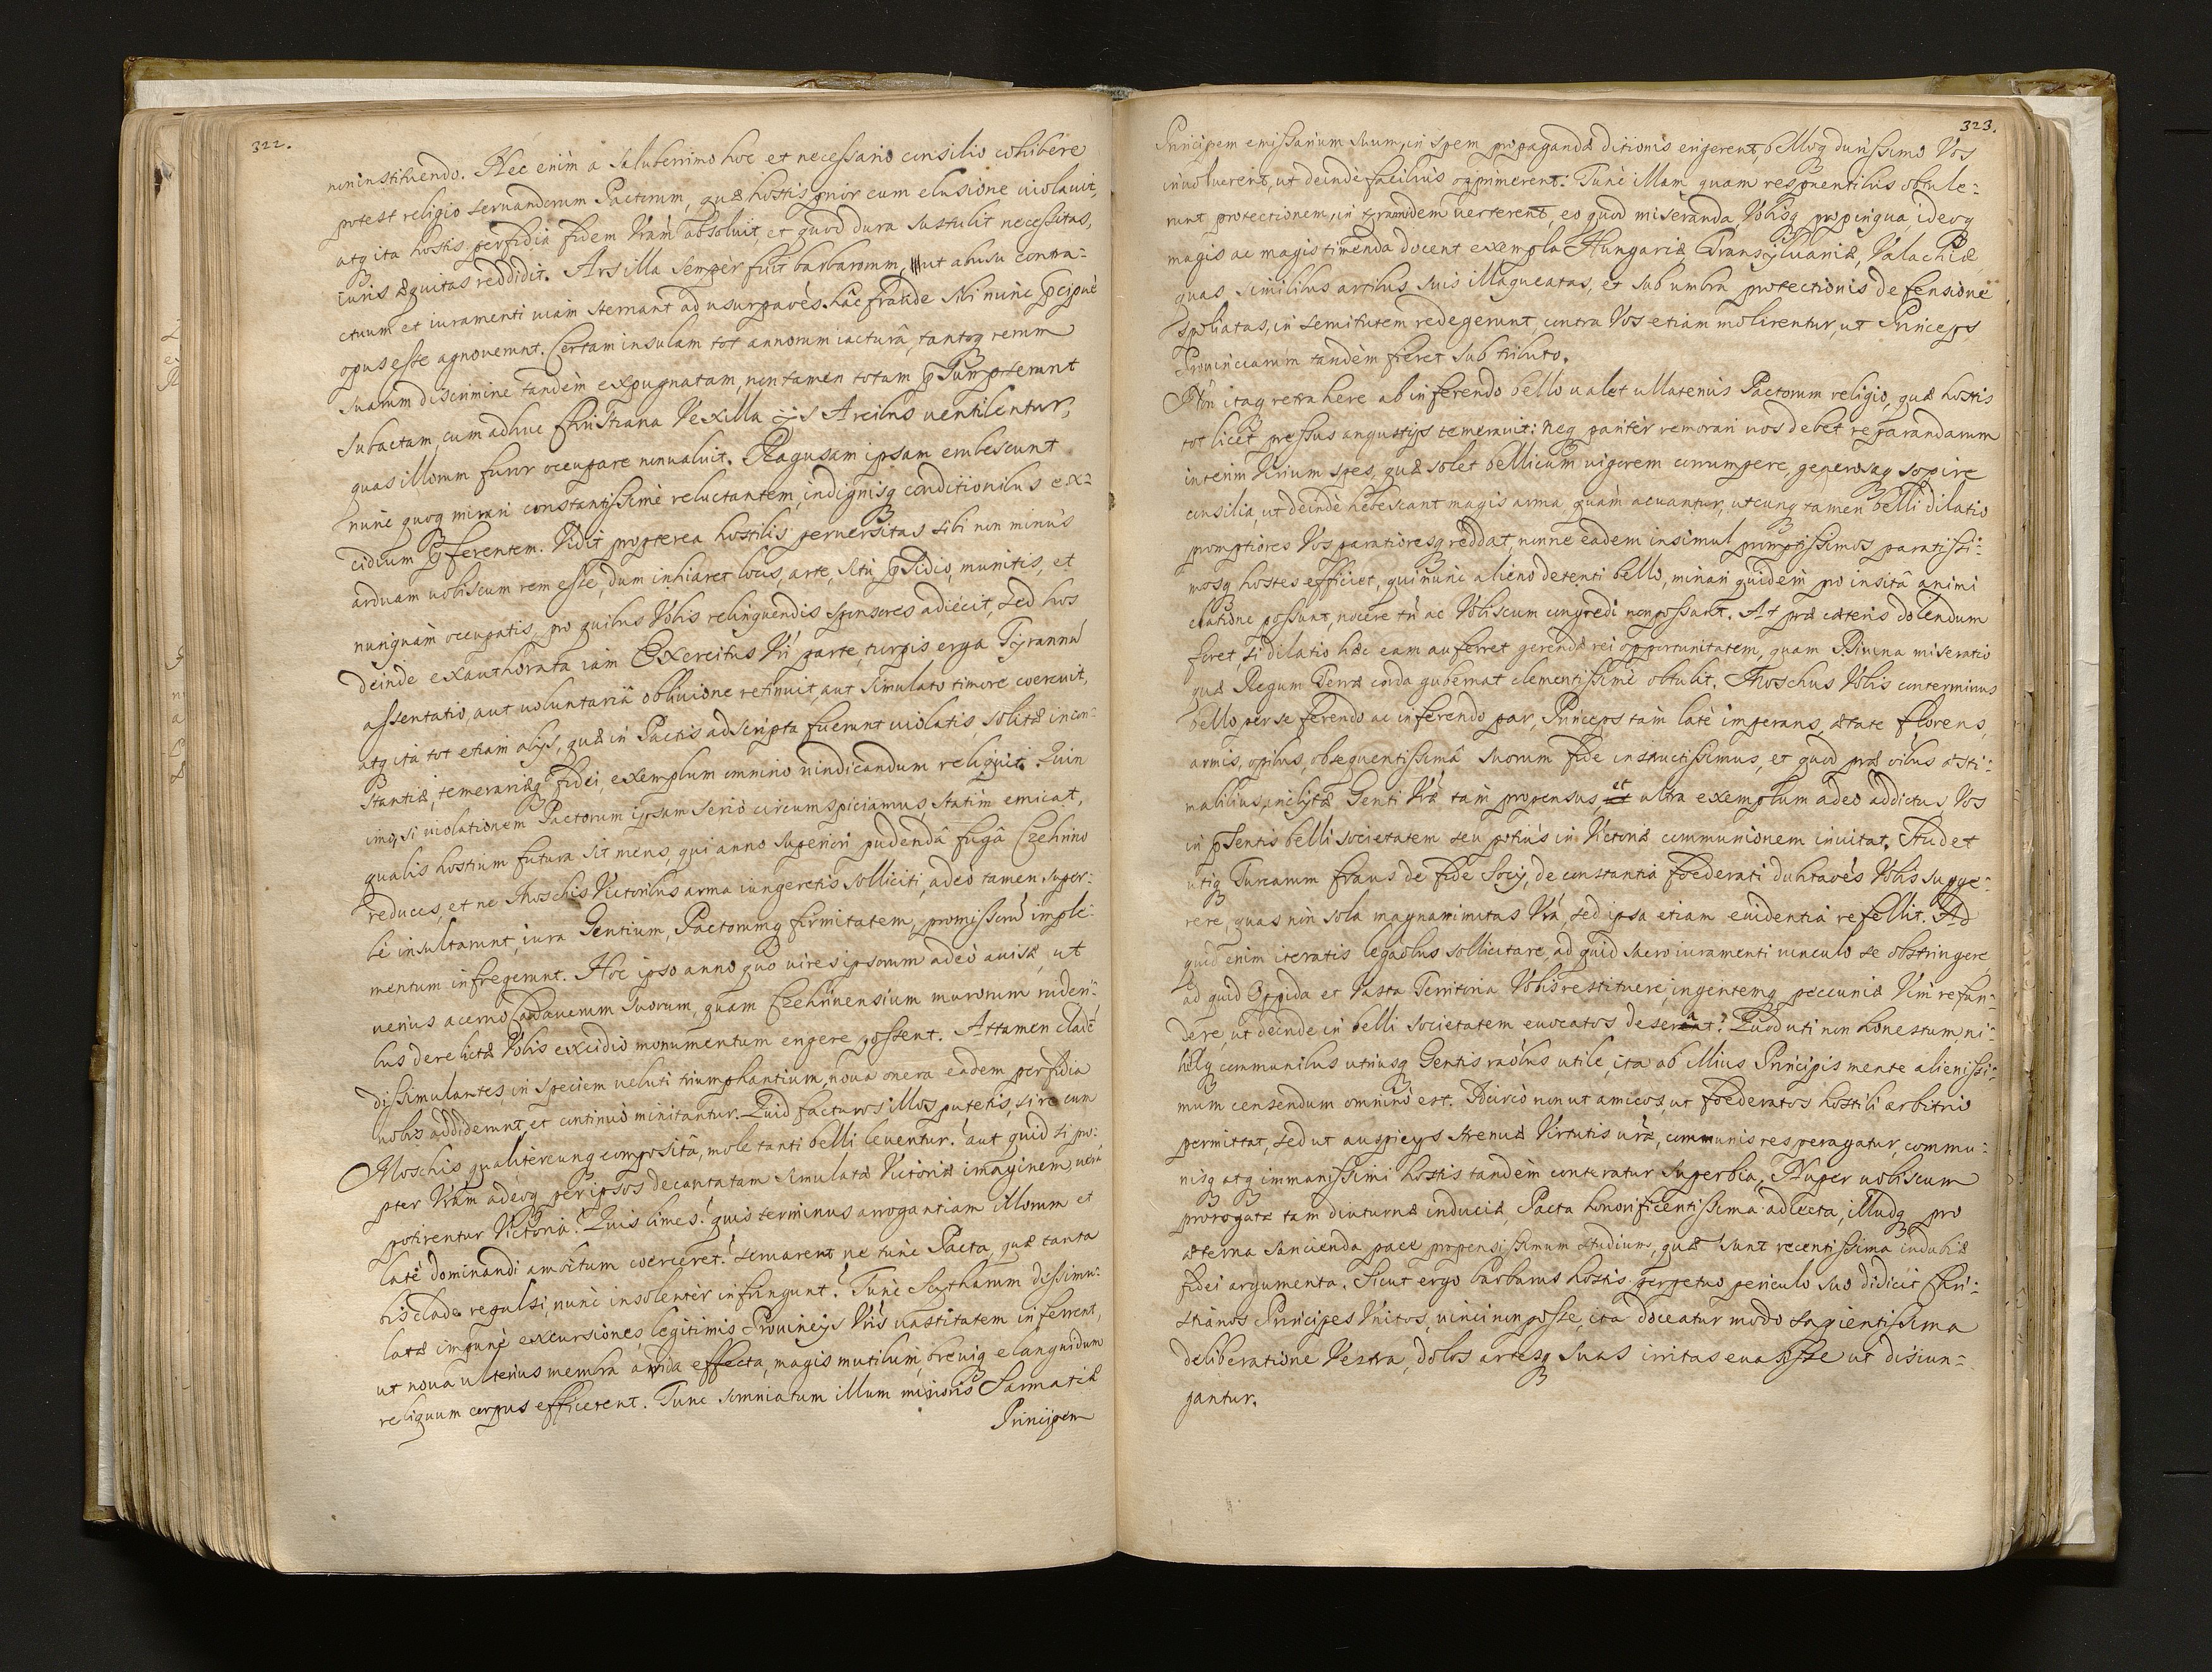 322.
non instituendo. Nec enim a saluberrimo hoc et necessario consilio cohibere
potest religio seruandorum Pactorum, quæ hostis prior cum elusione uiolauit,
atq ita hostis perfidia fidem Vram absoluit, et quod dura sustulit necessitas,
iuris æquitas reddidit. Ars illa semper fuit barbarorum, ut abusu contra-
ctuum et iuramenti uiam sternant ad usurpaões. hâc fraude sibi nunc
opus esse agnouerunt. Certam insulam tot annorum iacturâ, tantoq rerum
suarum discrimine tandem expugnatam, non tamen totam
subactam, cum adhuc Christiana Vexilla Arcibus uentilentur,
quas illorum furor occupare non ualuit. Ragusam ipsam erubescunt
nunc quoq mirari constantissimè reluctantem, indignisq conditionibus ex-
cidium pferentem. Vidit propterea hostilis peruersitas sibi non minus
arduam uobiscum rem esse, dum inhiaret locis, arte, situ psidio, munitis, et
nunquam occupatis, pro quibus Vobis relinquendis sponsores adiecit, sed hos
deinde exauthorata iam Exercitus Vri parte, turpis erga Tyrannũ
assentatio, aut uoluntariâ obliuione retinuit, aut simulato timore coercuit,
atq ità tot etiam alijs, quæ in Pactis adscripta fuerunt uiolatis, solitæ incon-
stantiæ, temerariæq fidei, exemplum omnino uindicandum reliquit. Quin
imò, si uiolationem Pactorum ipsam seriò circumspiciamus, statim emicat,
qualis hostium futura sit mens, qui anno superiori pudendâ fugâ Czehrino
reduces, et ne Moschis Victoribus arma iungeretis solliciti, adeò tamen super-
bè insultarunt, iura Gentium, Pactorumq firmitatem, promissorũ imple-
mentum infregerunt. Hoc ipso anno quo uires ipsorum adeò auisæ, ut
uerius aceruo Cadauerum suorum, quam Czehrinensium murorum ruderi-
bus derelictæ Vobis excidio monumentum erigere possent. Attamen cladẽ
dissimulantes, in speciem ueluti triumphantium, noua onera eadem perfidia
nobis addiderunt, et continuò minitantur. Quid facturos illos putetis, si re cum
Moschis, qualitercunq compositâ, mole tanti belli leuentur? aut quid si pro-
pter Vram adeoq per ipsos decantatam simulatæ Victoriæ imaginem, uera
potirentur Victoria? Quis limes? quis terminus arrogantiam illorum et
latè dominandi ambitum coerceret? seruarent ne tunc Pacta, quæ tanta
bis clade repulsi, nunc insolentèr infringunt? Tunc Scytharum dissimu-
latæ impune excursiones, legitimis Prouincijs Vris uastitatem inferrent,
ut noua ulterius membra auida effecta, magis mutilum, breuiq elanguidum
reliquum corpus efficerent. Tunc somniatum illum minoris Sarmatiæ
Principem
323.
Principem emissarium suum, in spem propagandæ ditionis erigerent, belloq durissimo Vos
inuoluerent, ut deinde facilius opprimerent: Tunc illam quam respuentibus obtule-
runt protectionem, in tyrannidem uerterent, eo quod miseranda, Vobisq propinqua, ideoq
magis ac magis timenda docent exempla Hungariæ, Transyluaniæ, Valachiæ,
quas similibus artibus suis illaqueatas, et sub umbra protectionis defensione
spoliatas, in seruitutem redegerunt, contra Vos etiam molirentur, ut Princeps
Prouinciarum tandem fieret sub tributo.
Non itaq retrahere ab inferendo bello ualet ullatenus Pactorum religio, quæ hostis
tot licet pressus angustijs temerauit: neq paritèr remorari uos debet reparandarum
interim Virium spes, quæ solet bellicum uigorem corrumpere, generosaq sopire
consilia, ut deinde hebescant magis arma, quam acuantur, utcunq tamen belli dilatio
promptiores Vos paratioresq reddat, nonne eadem insimul promptissimos paratissi-
mosq hostes efficiet, qui nunc alieno detenti bello, minari quidem pro insitâ animi
elatione possunt, nocere tñ ac Vobiscum congredi non possunt. At præ cæteris dolendum
foret si dilatio hæc eam auferret gerendæ rei opportunitatem, quam Diuina miseratio
quæ Regum Terræ corda gubernat clementissimè obtulit. Moschus Vobis conterminus
bello per se ferendo ac inferendo par, Princeps tam latè imperans, ætate florens,
armis, opibus, obsequentissimâ suorum fide instructissimus, et quod præ oibus æsti-
mabilius, inclytæ Genti Vræ tam propensus, et ultra exemplum adeo addictus Vos
in psentis belli societatem seu potius in Victoriæ communionem inuitat. Studet
utiq Turcarum fraus de fide Socij, de constantia foederati dubitaões Vobis sugge-
rere, quas non sola magnanimitas Vra, sed ipsa etiam euidentia refellit. Ad
quid enim iteratis legaõbus sollicitare, ad quid sacro iuramenti uinculo se obstringere,
ad quid Oppida et Vasta Territoria Vobis restituere, ingentemq pecuniæ Vim refun-
dere, ut deinde in belli societatem euocatos deserat? Quod uti non honestum, ni-
hilq communibus utriusq Gentis raõbus utile, ita ab illius Principis mente alienissi-
mum censendum omninò est. Idcirco non ut amicos, ut foederatos hostili arbitrio
permittat, sed ut auspicijs strenuæ Virtutis uræ, communis res peragatur, commu-
nisq atq immanissimi hostis tandem conteratur superbia, Nuper uobiscum
prorogatæ tam diuturnæ induciæ, Pacta honorificentissima adiecta, illudq pro
æterna sancienda pace propensissimum studium, quæ sunt recentissima indubiæ
fidei argumenta. Sicut ergo barbarus hostis perpetuo periculo suo didicit Chri-
stianos Principes Vnitos, uinci non posse, ita doceatur modo sapientissima
deliberatione Vestra, dolos artesq suas irritas euasisse ut disiun-
gantur.